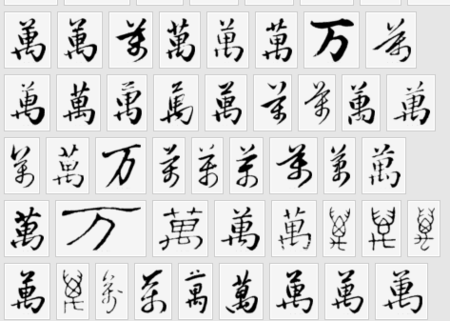 萬萬萬萬萬萬万萬
萬萬萬萬萬萬萬萬萬
萬萬万萬萬萬萬萬萬
萬万萬萬萬萬萬萬
萬萬萬萬萬萬萬萬萬